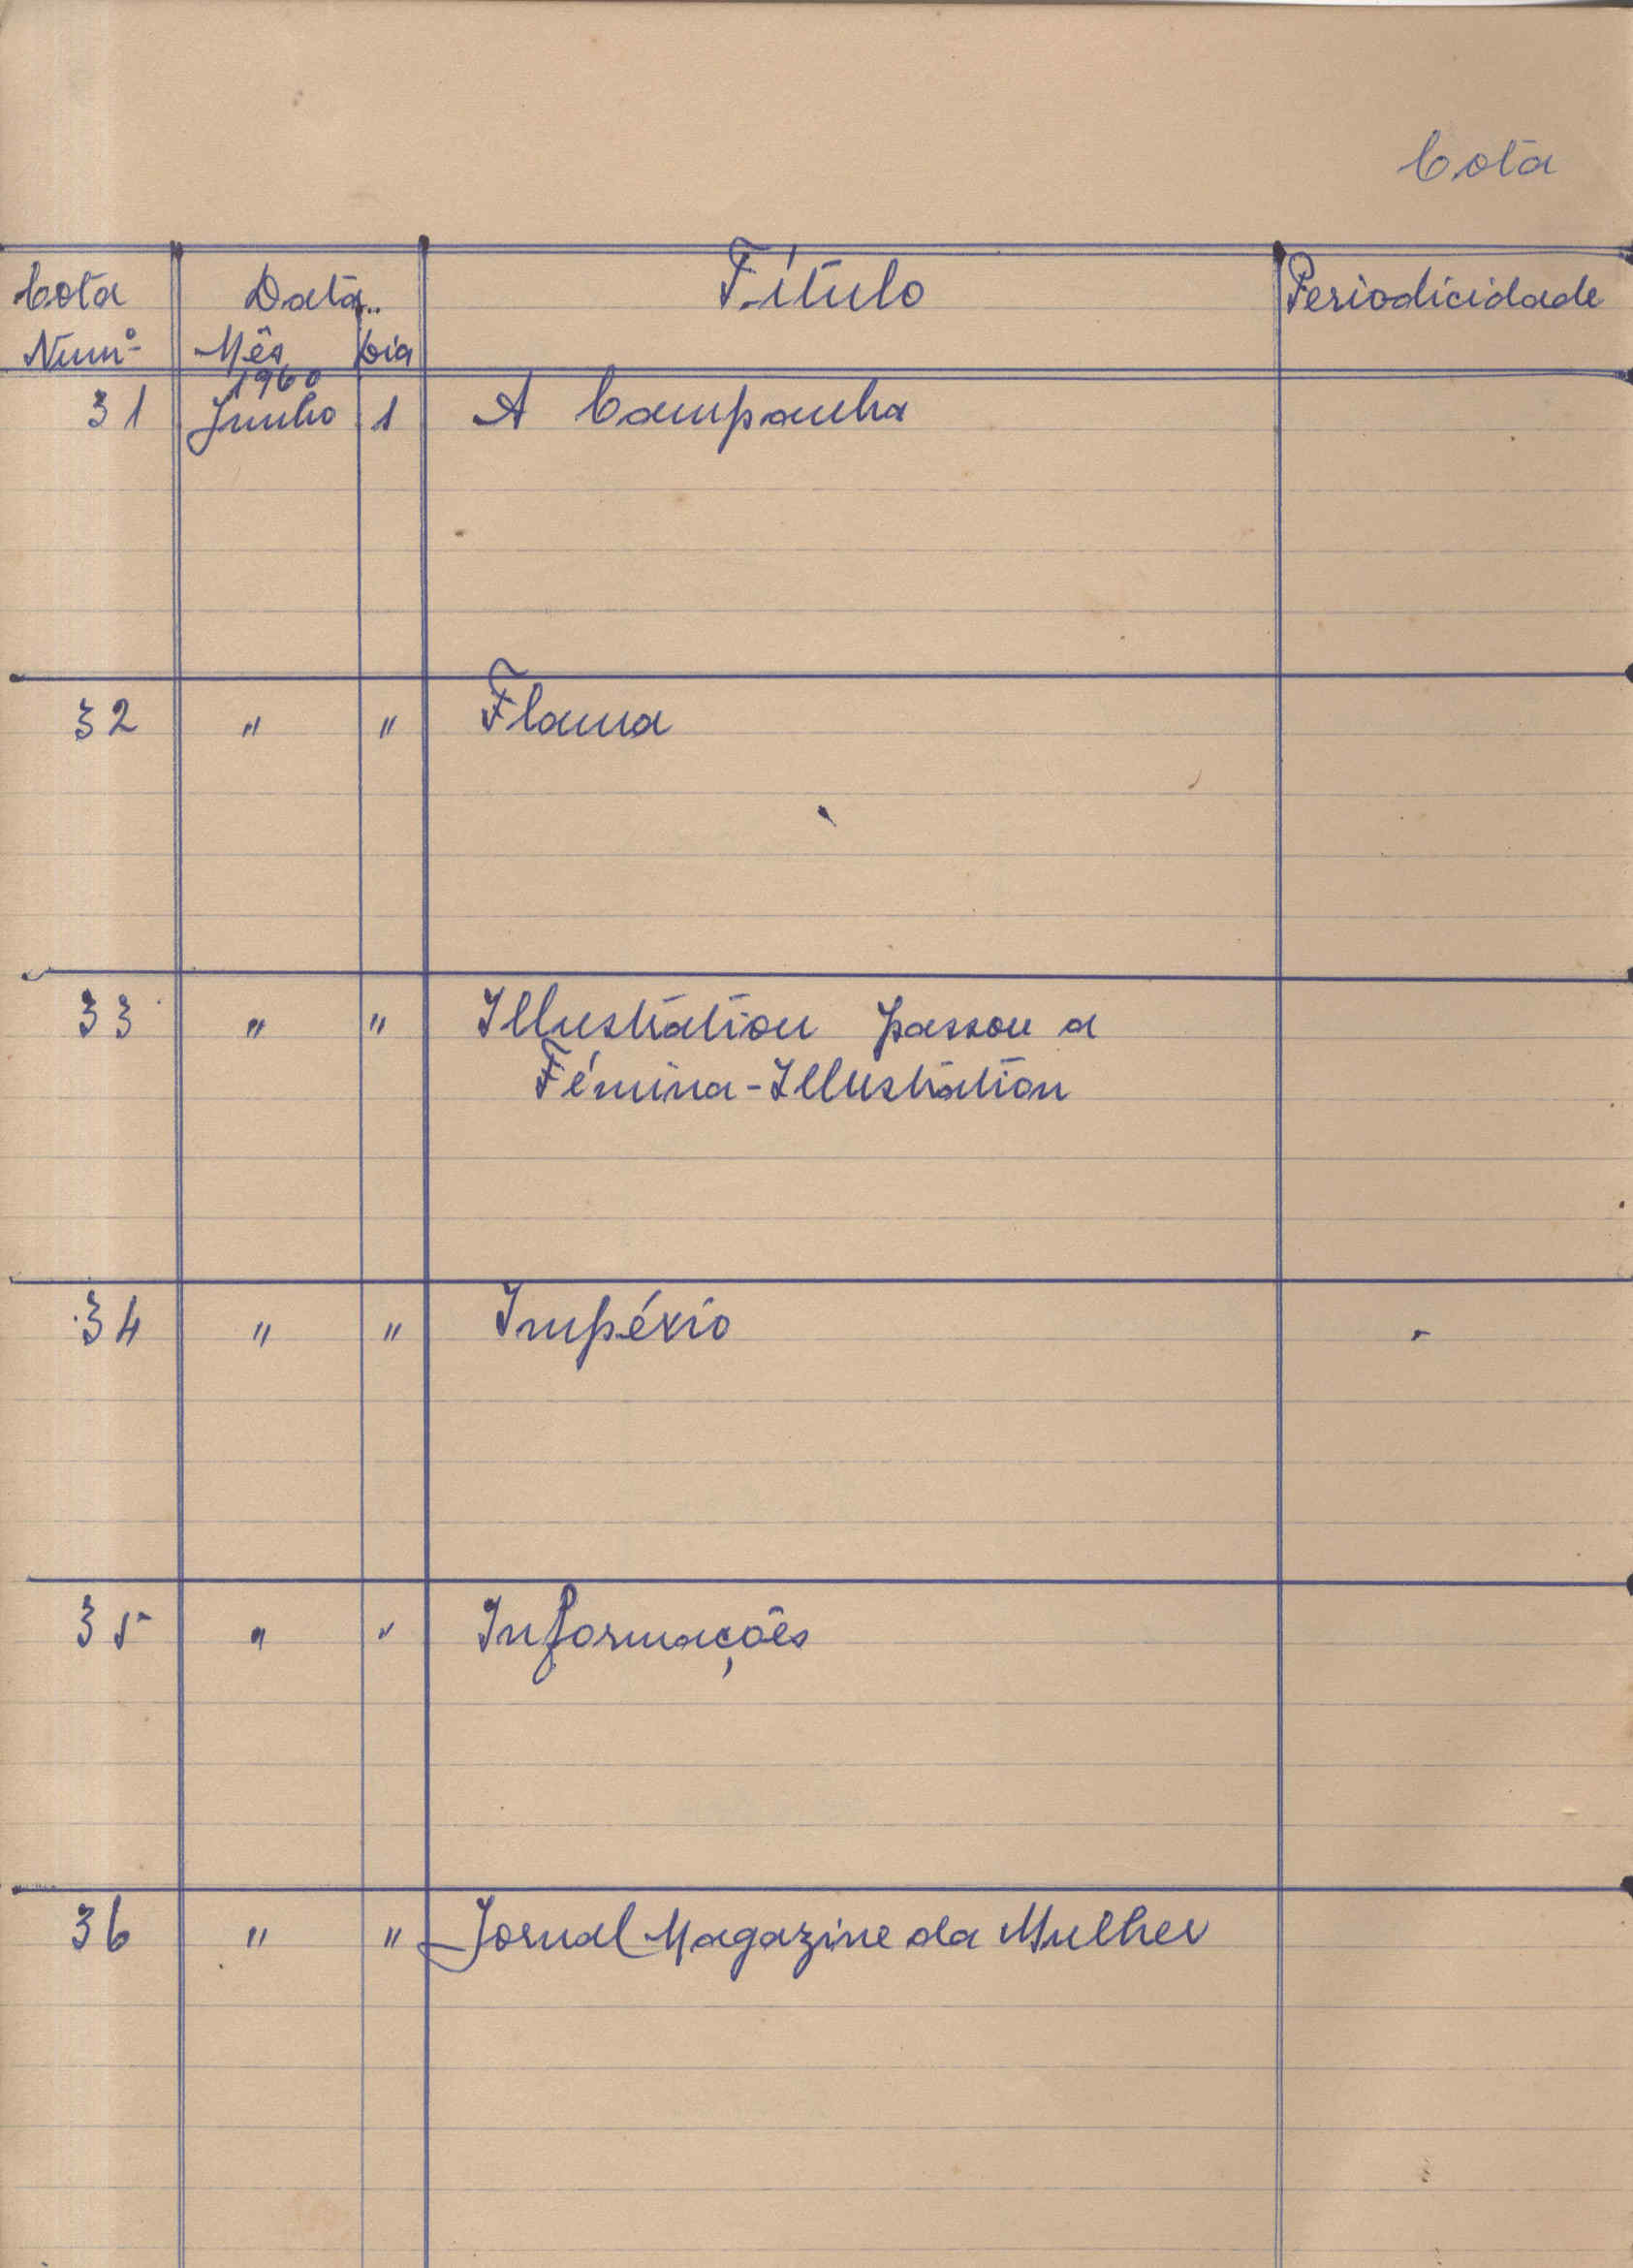 Cota
Cota Data Título Periodicidade
Numº Mês Dia
1960
31 Junho 1 A Campanha
32 " " Flama
33 " " Illustration passou a
Fémina-Illustration
34 " " Império
35 " " Informações
36 " " Jornal Magazine da Mulher